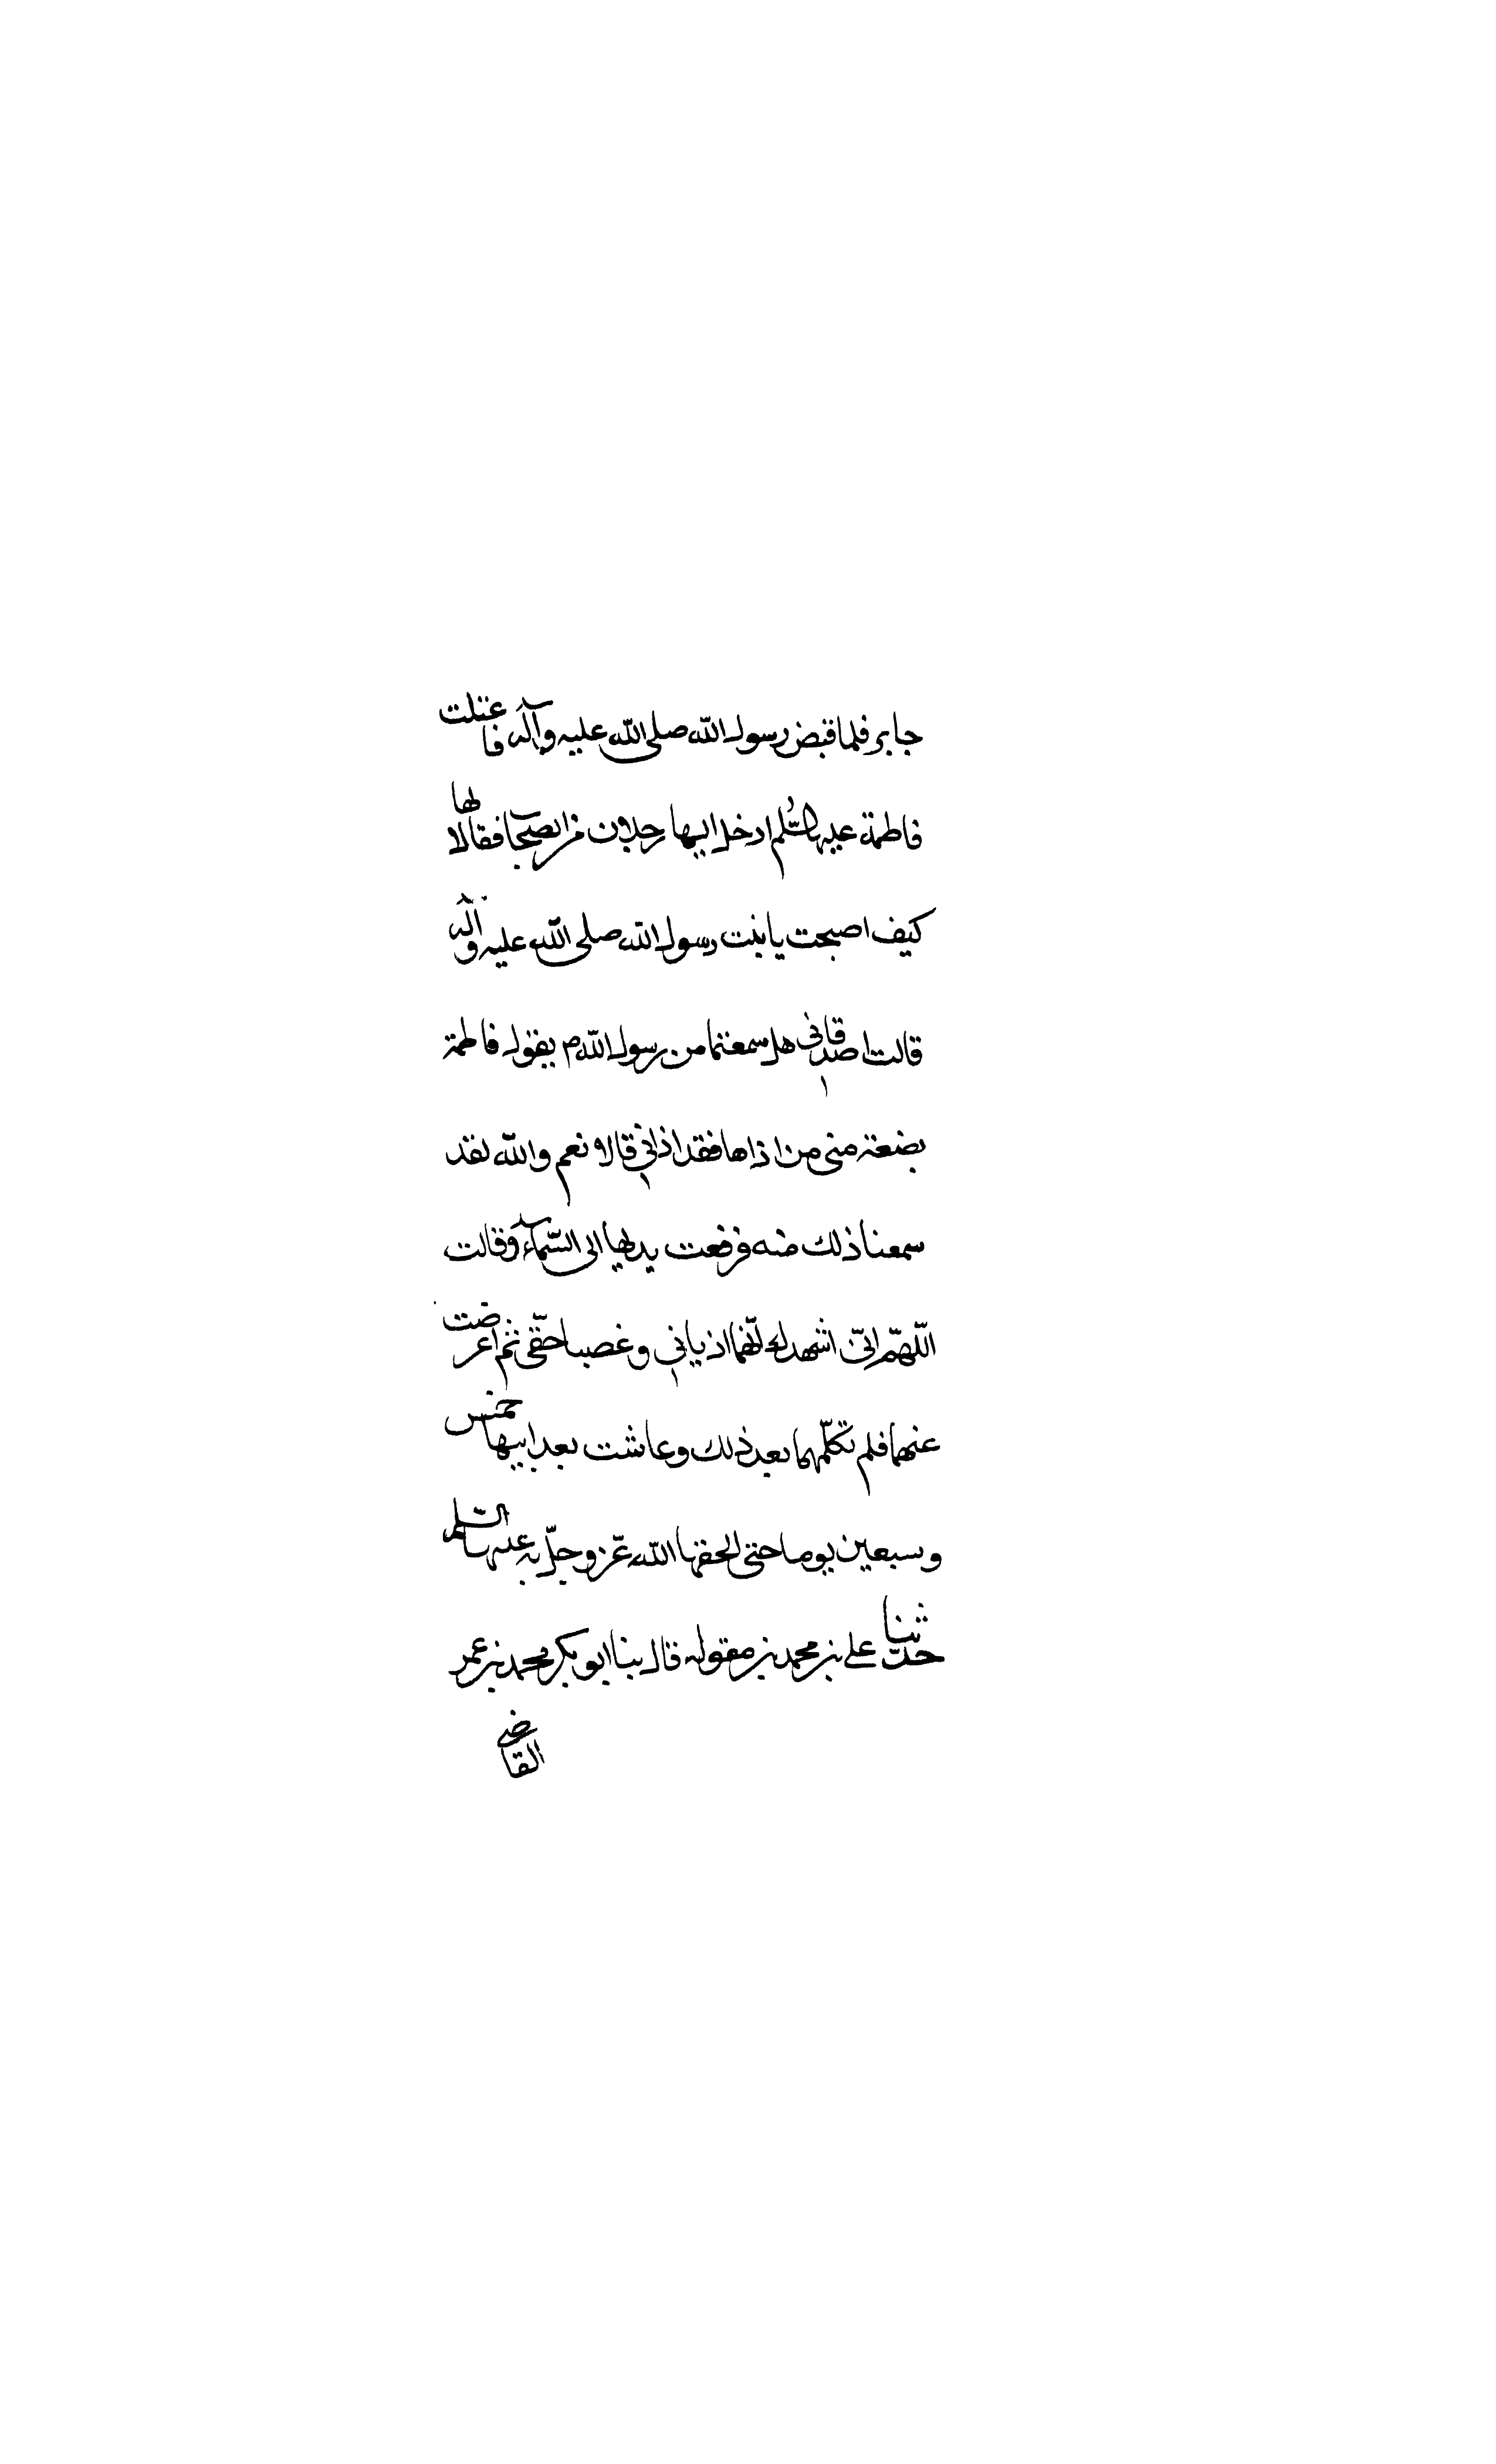 جابر فلما قبض رسول الله صلى الله عليه وآله فاعتلت
فاطمة عليها السلم ادخل اليها رجلان من الصحابة فقالا لها
كيف اصبحت يا بنت رسول الله صلى الله عليه وآله
قالت اصدقاني هل سمعتما من رسول الله م يقول فاطمة
بضعة مني من اذاها فقد اذاني قالا نعم والله لقد
سمعنا ذلك منه فرفعت يديها الى السمآء وقالت
اللّهمّ انّى اشهدك انّهما اذياني وغصبا حقّى ثم اعرضت
عنهما فلم تكلّمهما بعد ذلك وعاشت بعد ابيها خمس
وسبعين يوما حتى الحقها الله عزّ وجلّ به عليها السّلم
حدّثنا على بن محمد بن مقوله قال بنا ابو بكر محمد بن عمر
القاضي